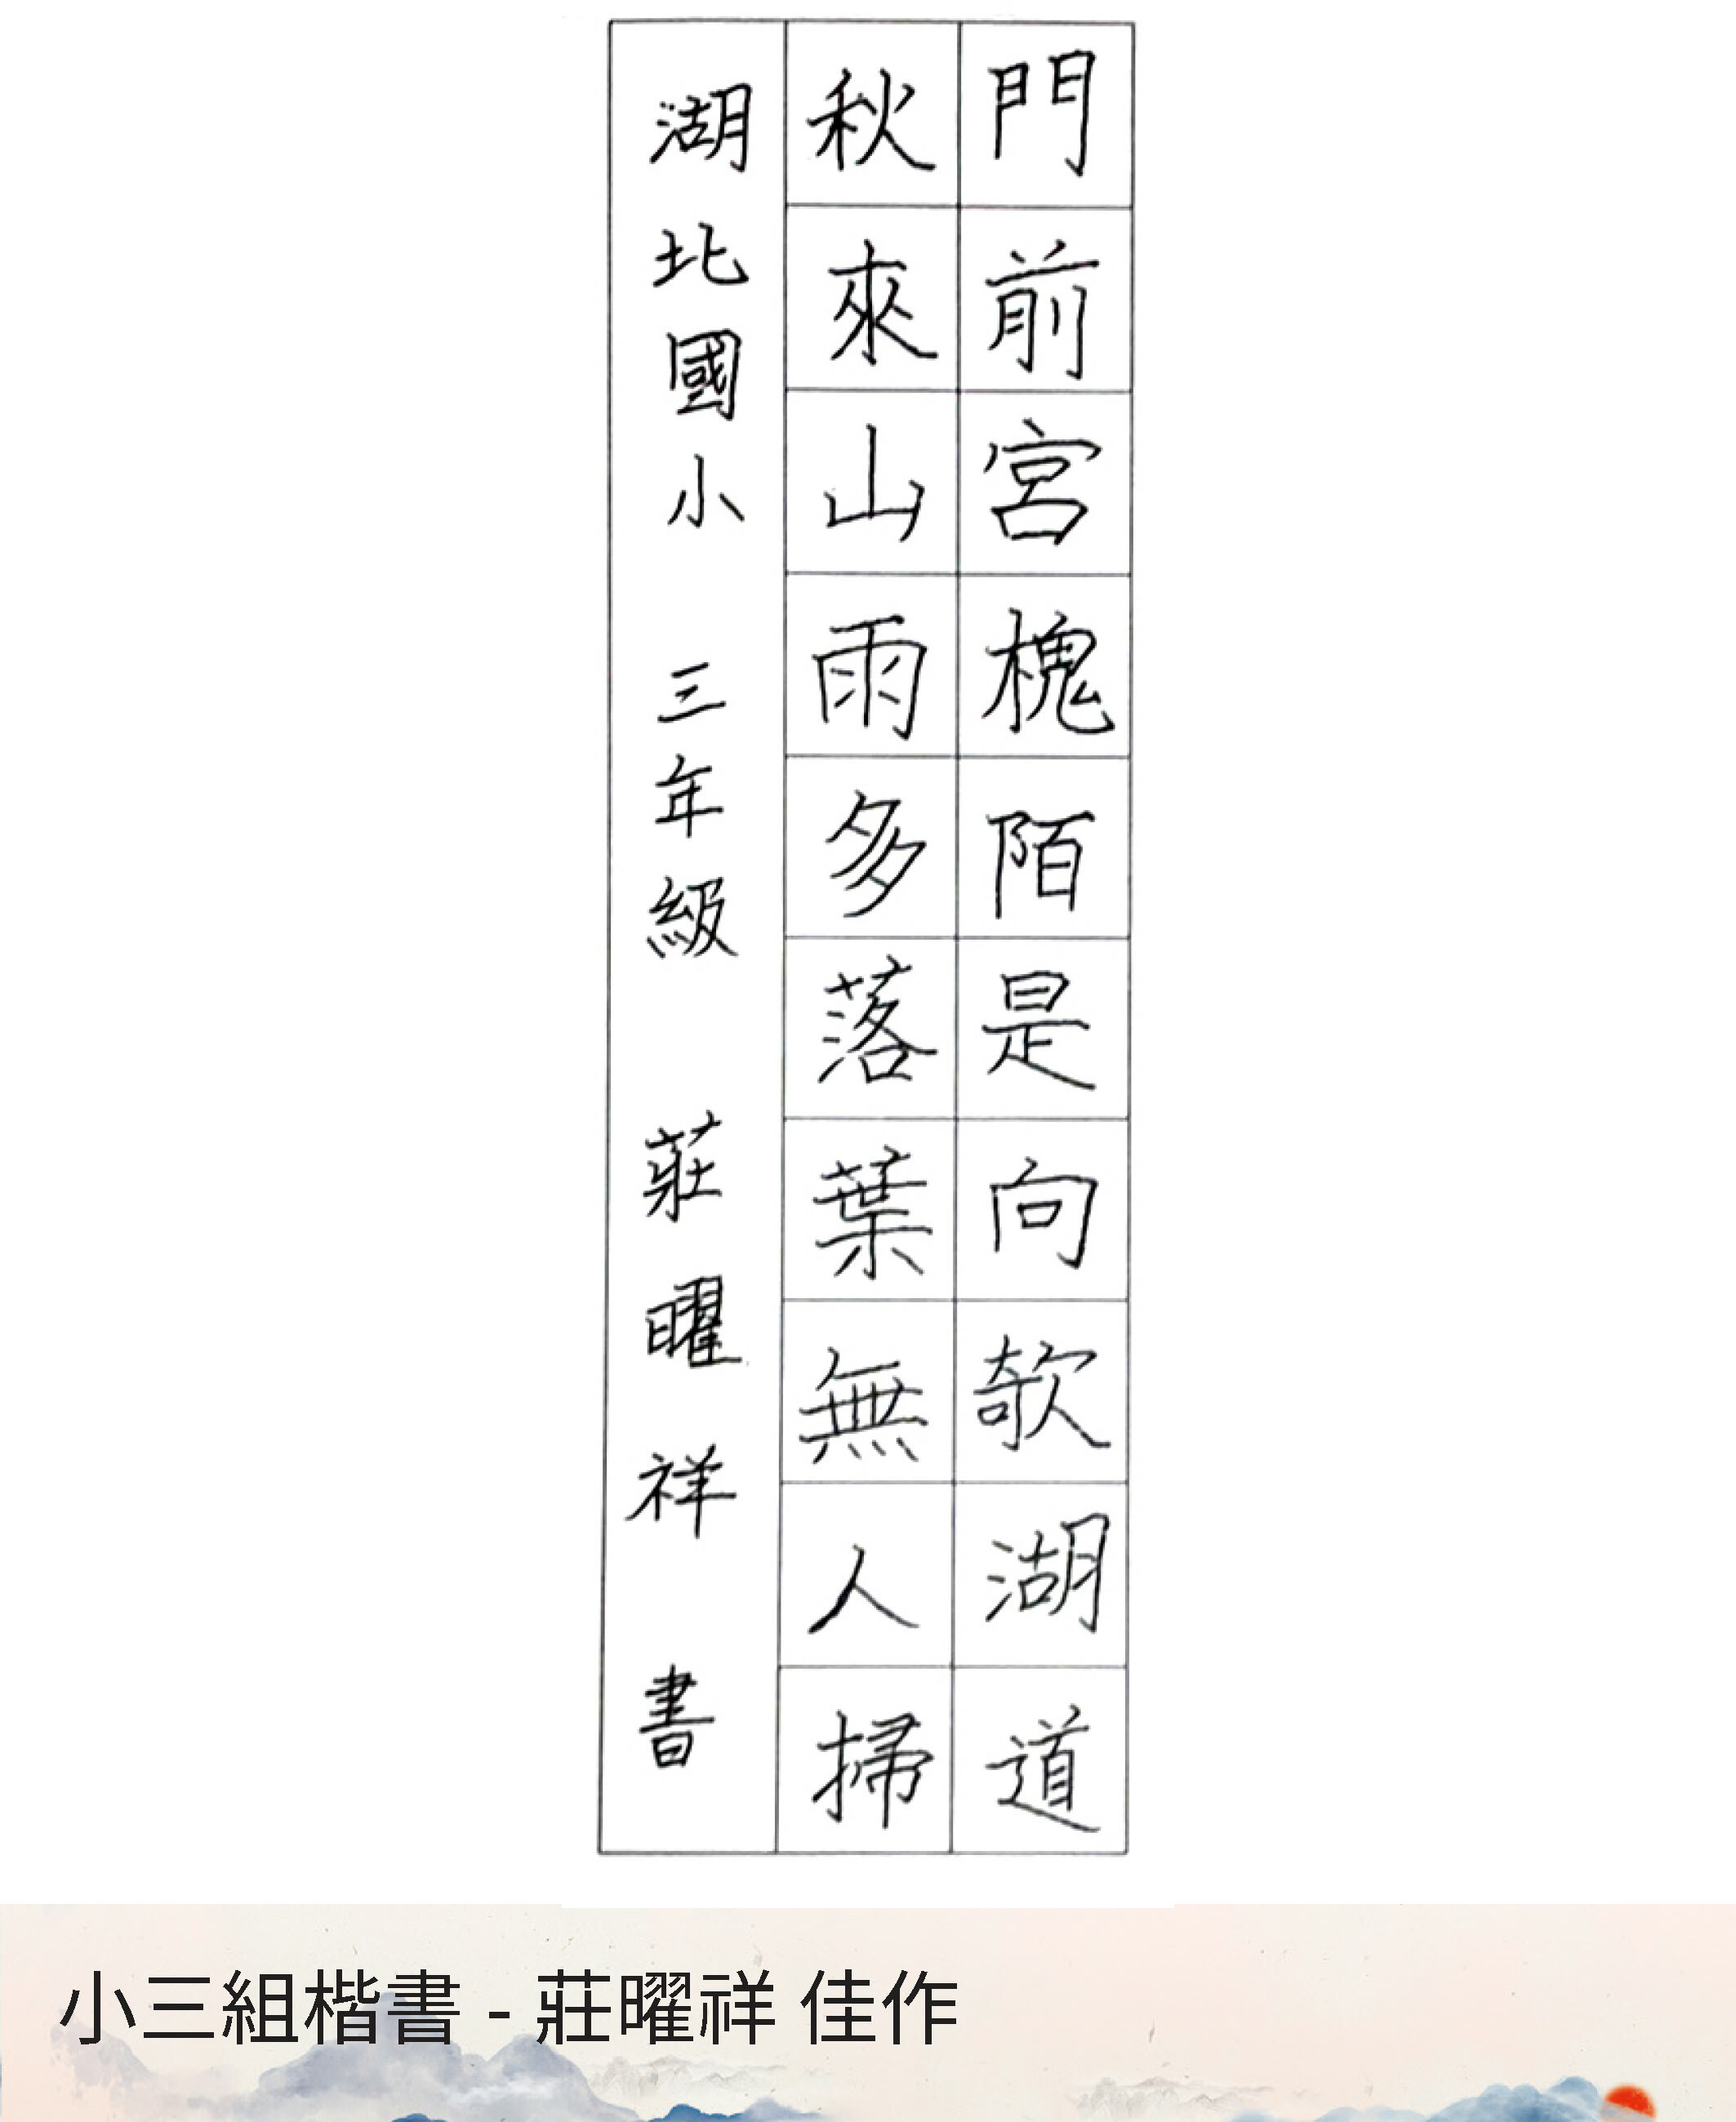 門前宮槐陌是向欹湖道
秋來山雨多落葉無人掃
湖北國小 三年級 莊曜祥 書
小三組楷書 - 莊曜祥 佳作